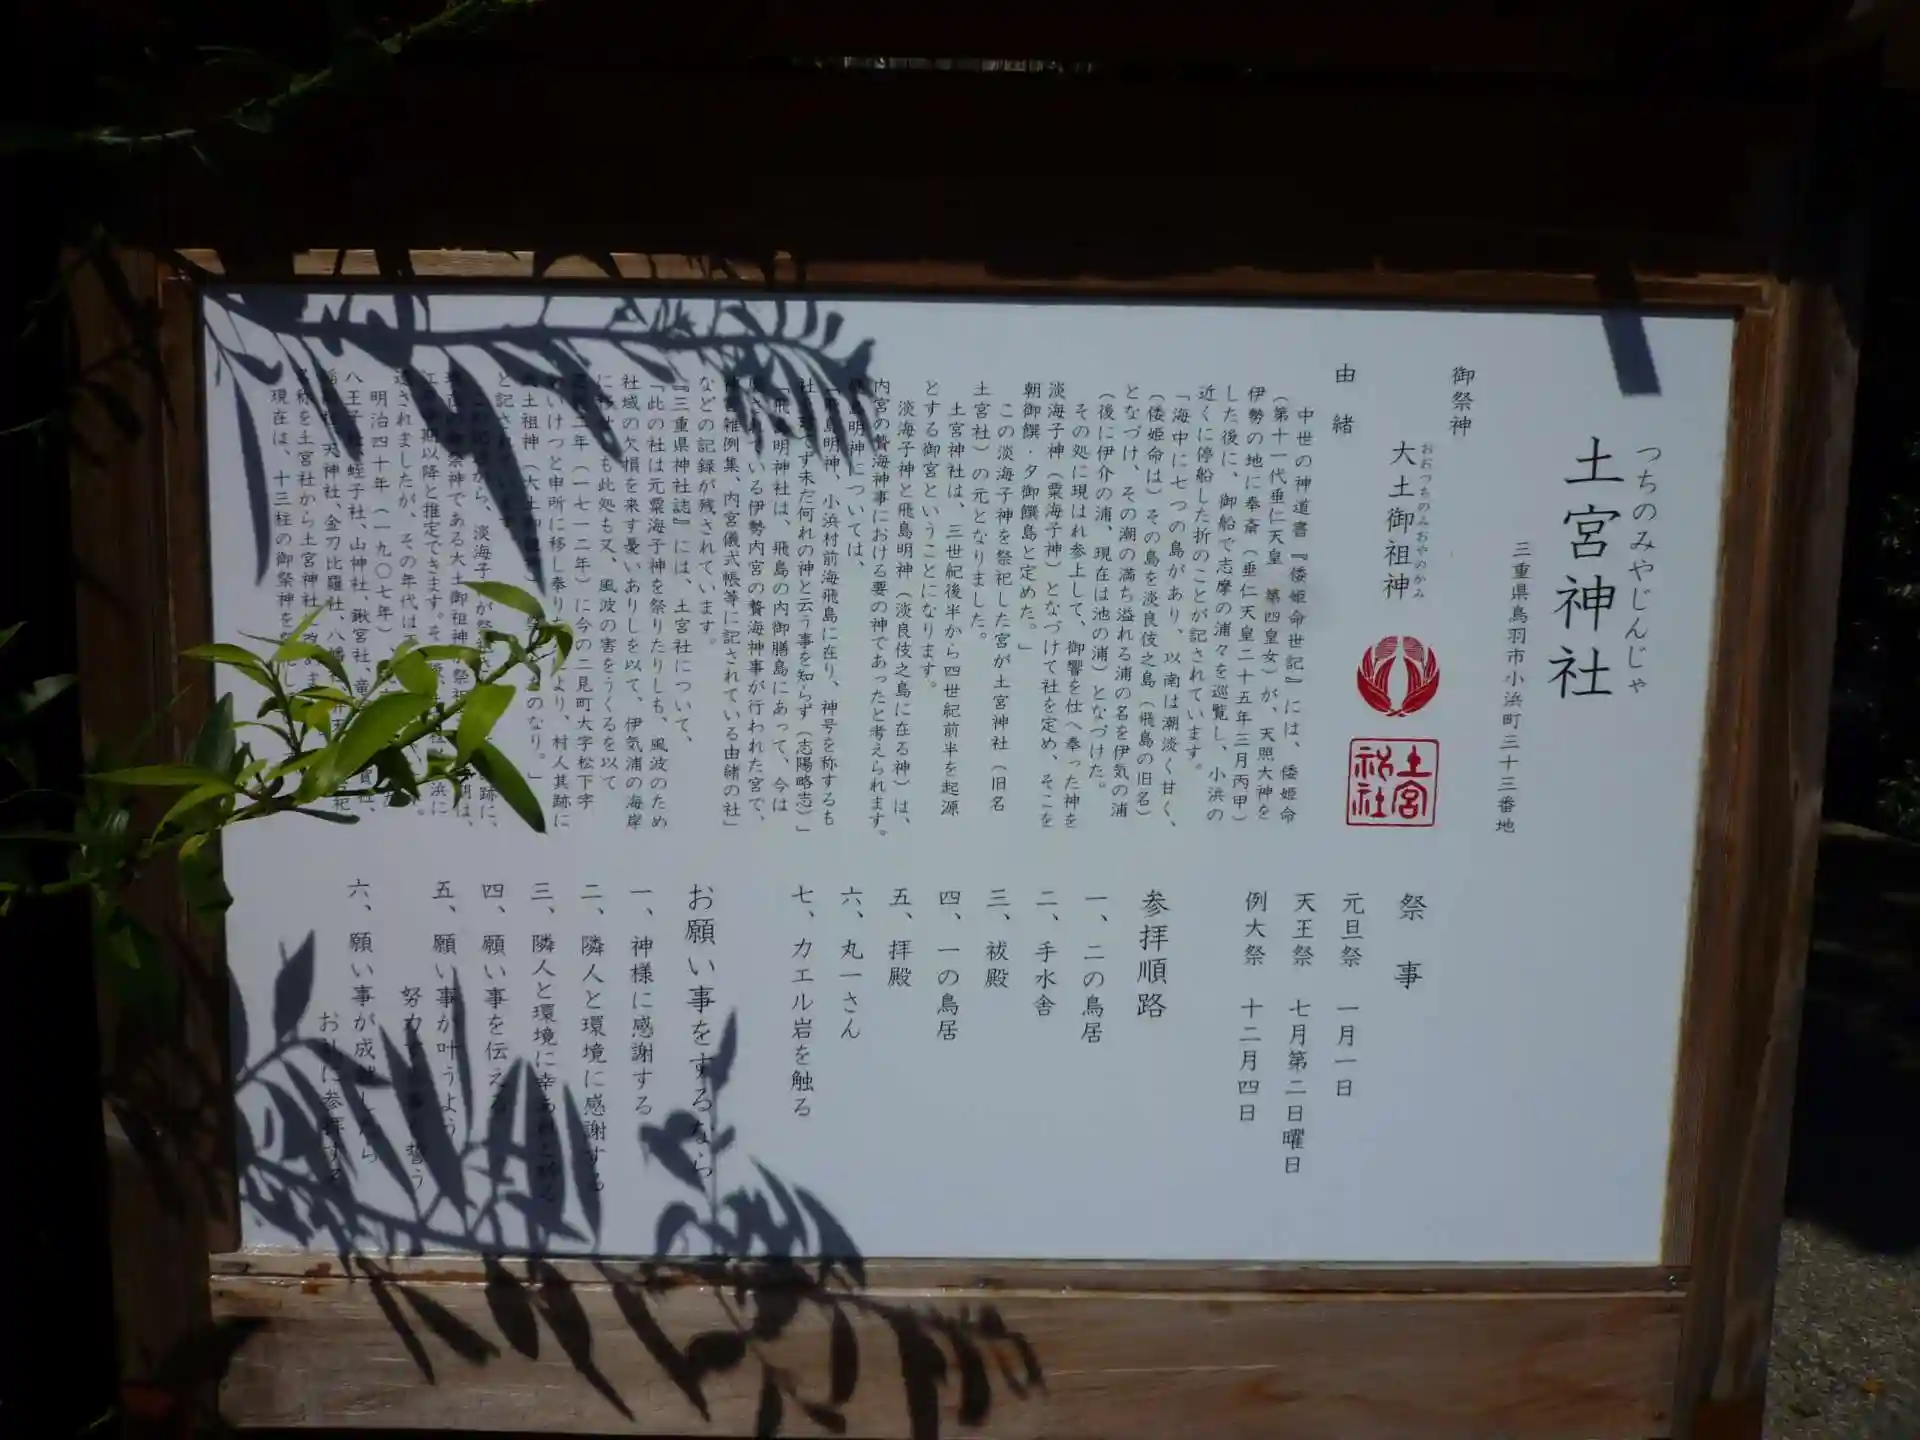 つちのみやじんじゃ
土宮神社
三重県鳥羽市小浜町三十三番地
御祭神
おおつちのみおやのかみ
大土御祖神
土宮
神社
由緒
中世の神道書『倭姫命世記』には、倭姫命
(第十一代垂仁天皇 第四皇女)が、天照大神を
伊勢の地に奉斎(垂仁天皇二十五年三月丙甲)
した後に、御船で志摩の浦々を巡覧し、小浜の
近くに停船した折のことが記されています。
「海中に七つの島があり、以南は潮淡く甘く、
(倭姫命は)その島を淡良伎之島(飛島の旧名)
となづけ、その潮の満ち溢れる浦の名を伊気の浦
(後に伊介の浦、現在は池の浦)となづけた。
その処に現はれ参上して、御響を仕へ奉った神を
淡海子神(粟海子神)となづけて社を定め、そこを
朝御饌・夕御饌島と定めた。」
この淡海子神を祭祀した宮が土宮神社(旧名
土宮社)の元となりました。
土宮神社は、三世紀後半から四世紀前半を起源
とする御宮ということになります。
淡海子神と飛島明神(淡良伎之島に在る神)は、
内宮の贄海神事における要の神であったと考えられます。
飛島明神については、
「飛島明神、小浜村前海飛島に在り、神号を称するも
社殿在らず未だ何れの神と云う事を知らず(志陽略志)」
「飛島明神社は、飛島の内御膳島にあって、今は
されている伊勢内宮の贄海神事が行われた宮で、
神宮雑例集、内宮儀式帳等に記されている由緒の社」
などの記録が残されています。
『三重県神社誌』には、土宮社について、
「此の社は元粟海子神を祭りたりしも、風波のため
社域の欠損を来す憂いありしを以て、伊気浦の海岸
に移せしも此処も又、風波の害をうくるを以て
二年(一七一二年)に今の二見町大字松下字
いけつと申所に移し奉り より、村人其跡に
土祖神(大土御祖神) のなり。」
と記されています。
から、淡海子 が祭祀 跡に、
御祭神である大土御祖神 祭祀 は、
江 期以降と推定できます。その 浜に
されましたが、その年代は
明治四十年(一九〇七年)、
八王子社、蛭子社、山神社、鍬宮社、
稲 社、天神社、金刀比羅社、八幡
称を土宮社から土宮神社に改め
現在は、十三柱の御祭神を
祭事
元旦祭 一月一日
天王祭 七月第二日曜日
例大祭 十二月四日
参拝順路
一、二の鳥居
二、手水舎
三、祓殿
四、一の鳥居
五、拝殿
六、丸一さん
七、カエル岩を触る
お願い事をするなら
一、神様に感謝する
二、隣人と環境に感謝する
三、隣人と環境に幸あれと祈る
四、願い事を伝える
五、願い事が叶うよう
努力する事を誓う
六、願い事が成就したら
お礼に参拝する